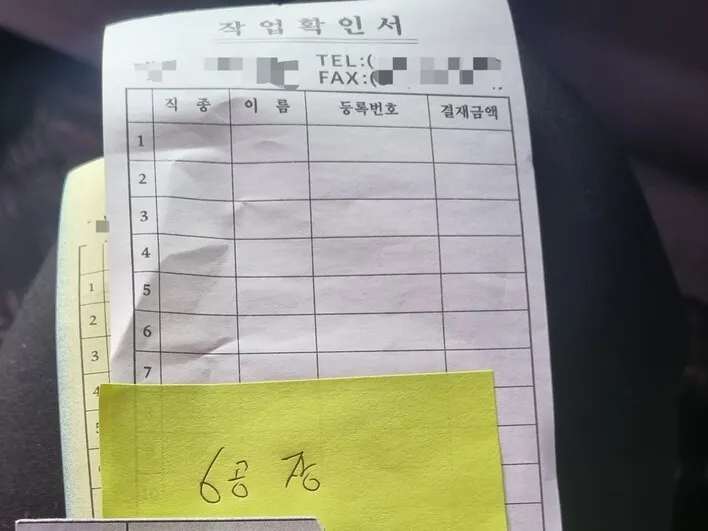 작업확인서
TEL:(
FAX:(
직종 이름 등록번호 결재금액
1
2
3
4
5
6
7
1
2
3
4
5
6공장